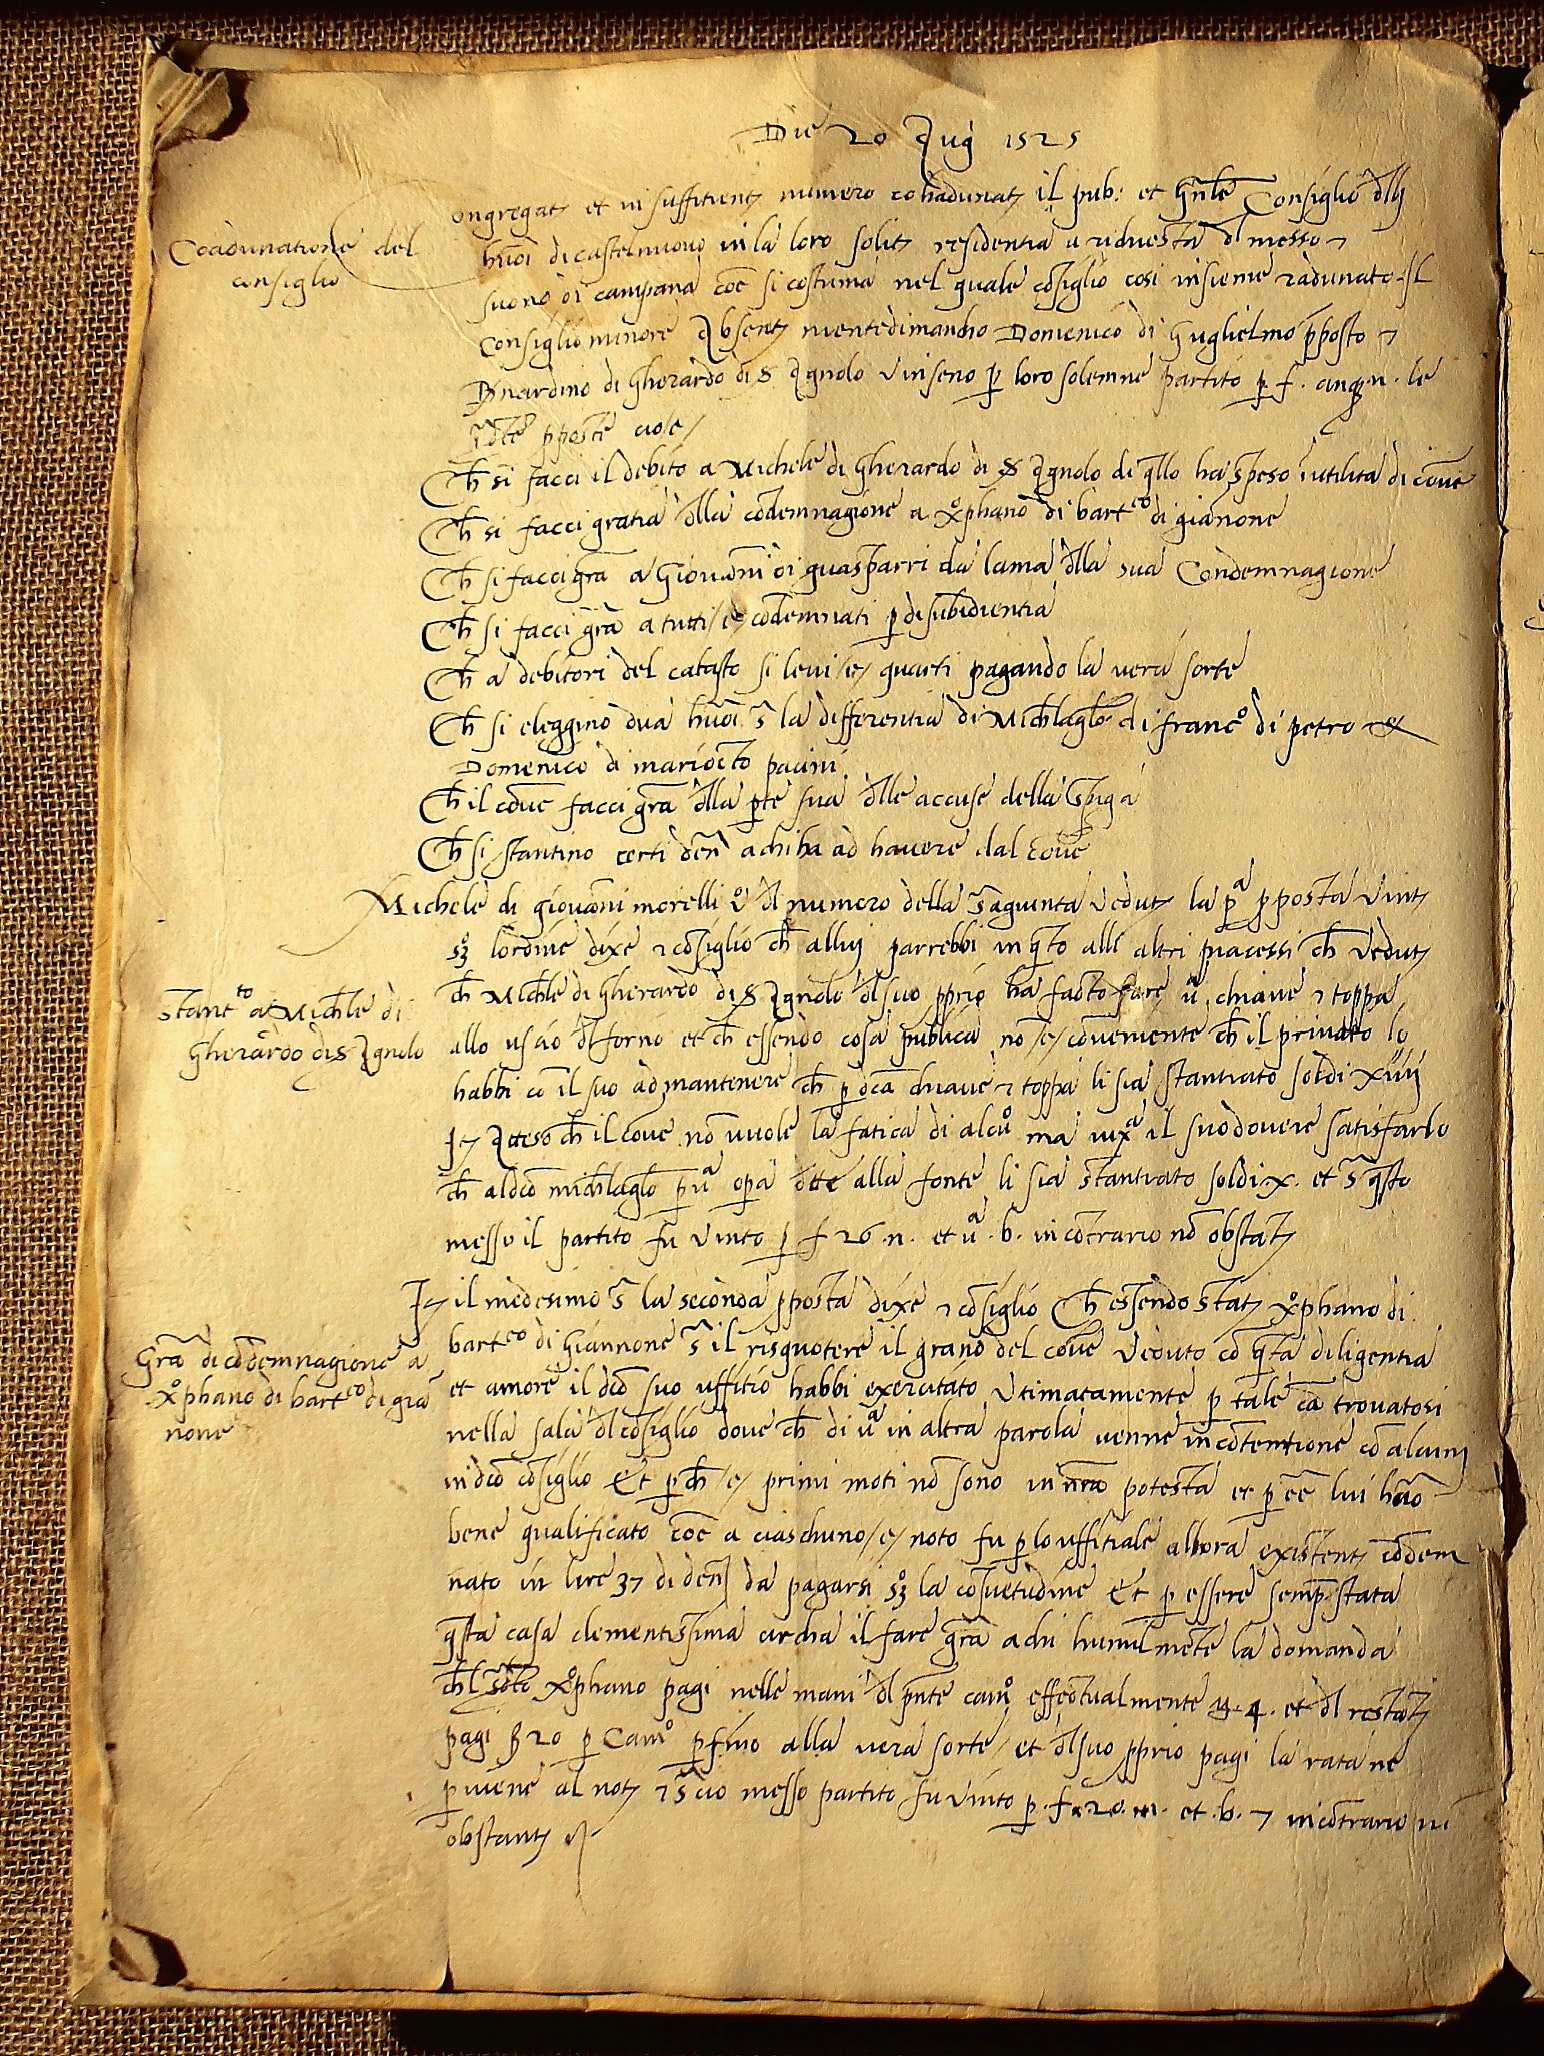 Die 20 Aug 1525
Coadunatione del
consiglio
ongregat et in suffitient numero cohadunat il pub: et gnle Consiglio dlli
huoi di castelnuovo in la loro solit residentia a richiesta dl messo
suono di campana coe si costuma nel quale cōsiglio cosi insieme radunato il
consiglio minore Absent nientedimancho Domenico di Guglielmo pposto
di Gherardo di S Agnolo vinseno p loro solemne partito p f. le
pposte cioe
Ch si facci il debito a Michele di Gherardo di S Agnolo di qllo ha speso ī utilita di coūe
Ch si facci gratia dlla cōdemnagione a xo͂phano di bartco di gianone
Ch si facci gra a Giovāni di guasparri da lama dlla sua Condemnagione
Ch si facci gra a tutti e cōdemnati p disubidientia
Ch a debitori del catasto si levi e quarti pagando la vera sorte
Ch si eleggino dua huōi s̄ la differentia di Michlaglo di franco di petro et
Domenico di mariocto pacini
Ch il coūe facci gra dlla pte sua dlle accuse della spiga
Ch si stantino certi den a chi ha ad havere dal coūe
Michele di giovāni morelli dl numero della vedut la pa pposta
lordine dixe cōsiglio ch allui parrebbi in qto alli altri piacessi ch vedut
Stantto a Michle di
Gherardo di S Agnolo
ch Michle di Gherardo di S Agnolo dl suo pprio ha facto fare ua chiave toppa
allo uscio dl forno et ch essendo cosa publica no e cōveniente ch il privato lo
habbi cō il suo ad mantenere ch p dca chiave toppa li sia stantiato soldi xiiii
It Atteso ch il coūe nō vuole la fatica di alcuo ma iuxa il suo dovere satisfarlo
ch al dco michlaglo p ua opa dtte alla fonte li sia stantiato soldi x. et s̄ qsto
messo il partito fu vinto p f 26 .n. et ua .b. in cōtrario nō obstat
It il medesimo s̄ la seconda pposta dixe cōsiglio Ch essendo stat xo͂phano di
Gra di cōdemnagione a
xo͂phano di bartco di gia
none
bartco di Giannone s̄ il risquotere il grano del coūe veduto cō qta diligentia
et amore il dco suo uffitio habbi exercitato Utimatamente p tale ca trovatosi
nella sala dl cōsiglio dove ch di ua in altra parola venne in cōtentione cō alcuni
in dco cōsiglio Et p ch e primi moti nō sono in nra potesta et p ee lui huo
bene qualificato coe a ciaschuno e noto fu p lo uffitiale alhora existent cōdem
nato in lire 37 di den da pagarsi la cōsuetudine Et p essere semp stata
qsta casa clementissima circha il fare gra a chi humilmēte la domanda
chl sdto xo͂phano pagi nelle mani dl pnte camo effectualmente 4. et dl restat
pagi 20 p Camo pfino alla vera sorte et dl suo pprio pagi la rata ne
pviene al not s̄ cio messo partito fu vinto p. f. 20. n. et .b. 7 in cōtrario nō
obstant